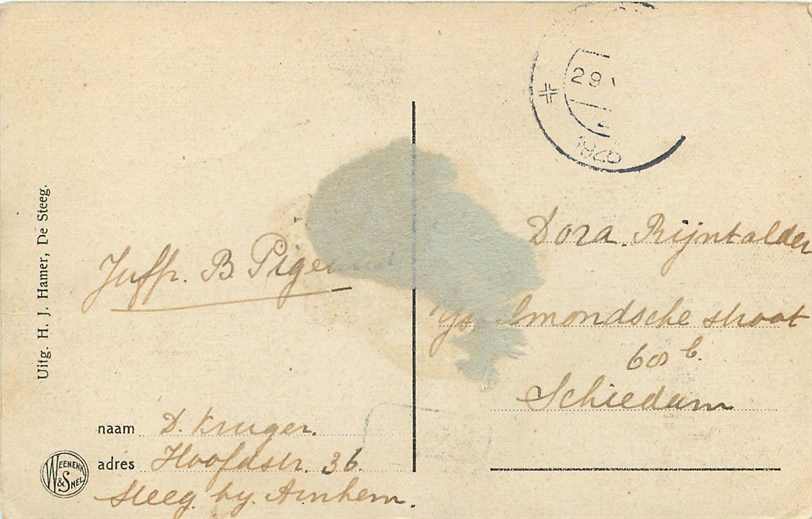 Uitg. H. J. Hamer, De Steeg.
Juffr. B
naam D. Kruger.
adres Hoofdstr. 36.
Steeg by Arnhem.
WEENENK & SNEL
29
Dora Rijntalder
straat
60 b.
Schiedam